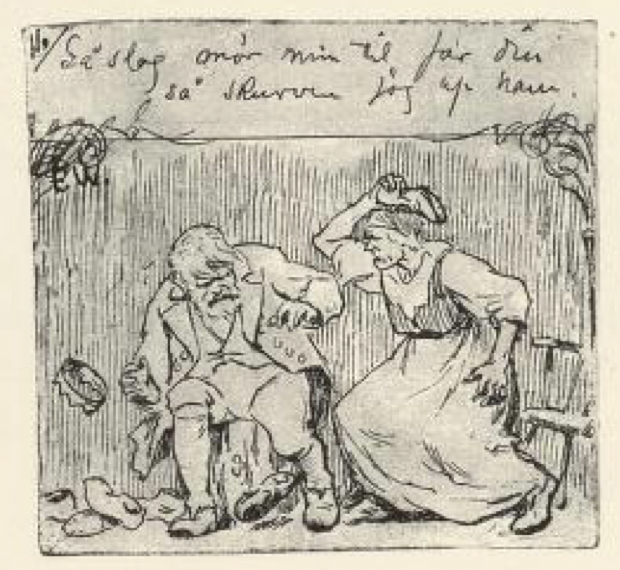 Så slog mor min til far din
så skurven jog up ham.
E.W.